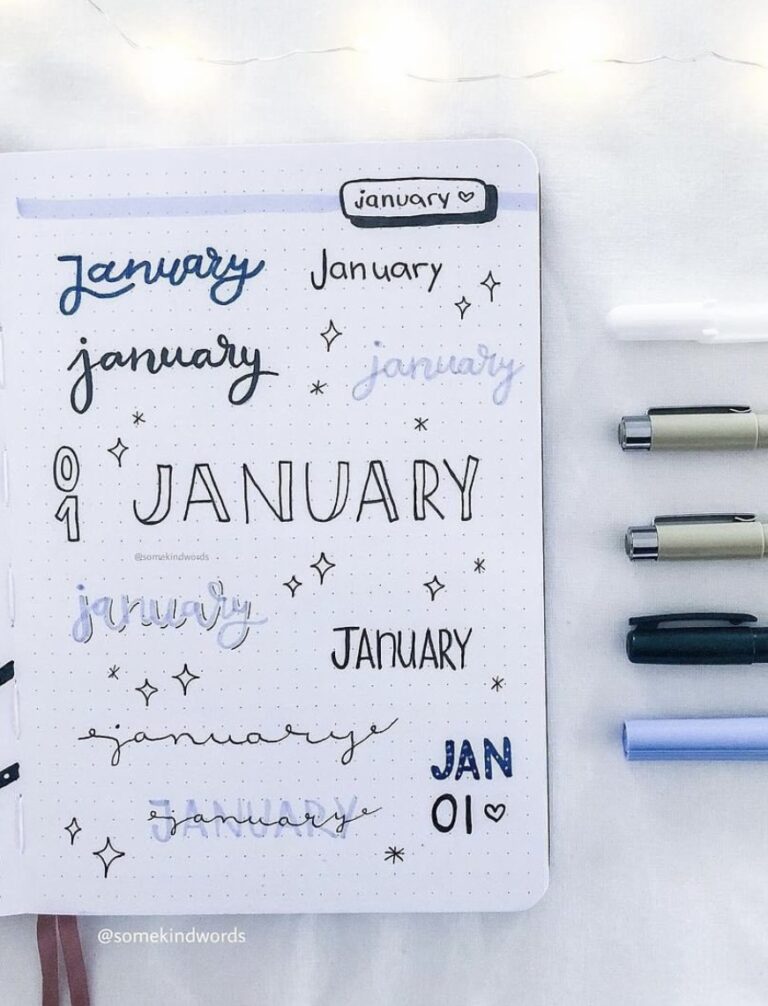 january ♡
January
January
january
january
01
JANUARY
@somekindwords
january
JANUARY
january
JAN
01 ♡
JANUARY
january
@somekindwords